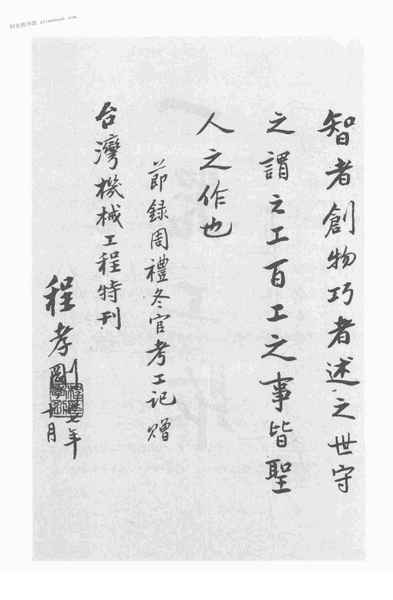 智者創物巧者述之世守
之謂之工百工之事皆聖
人之作也
節錄周禮冬官考工記贈
台灣機械工程特刊
程孝剛
七年
月